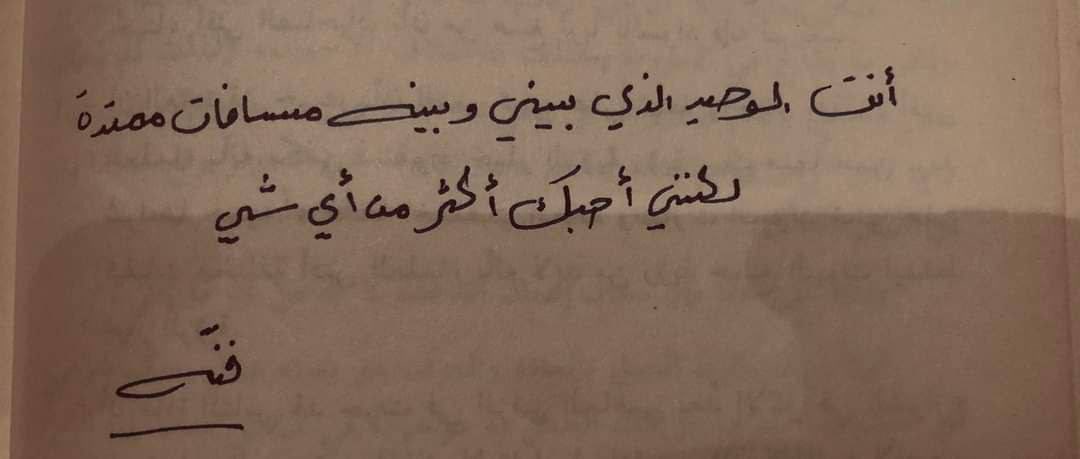 أنت الوحيد الذي بيني وبينه مسافات ممتدة
لكنني أحبك أكثر من أي شي